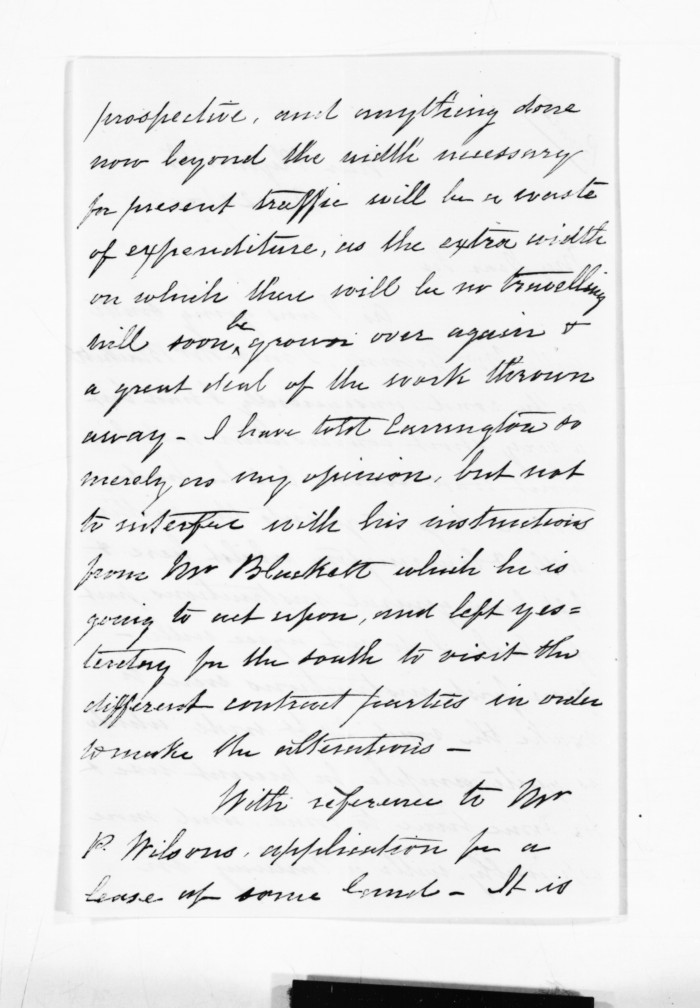 prospective, and anything done
now beyond the width necessary
for present traffic will be a waste
of expenditure, as the extra width
on which there will be no travelling
will soon be grown over again &
a great deal of the work thrown
away - I have told Carrington so
merely as my opinion, but not
to interfere with his instructions
from Mr Blackett which he is
going to act upon, and left yes=
terday for the south to visit the
different contract parties in order
to make the alterations -
With reference to Mr
P. Wilsons, application for a
lease of some land - It is